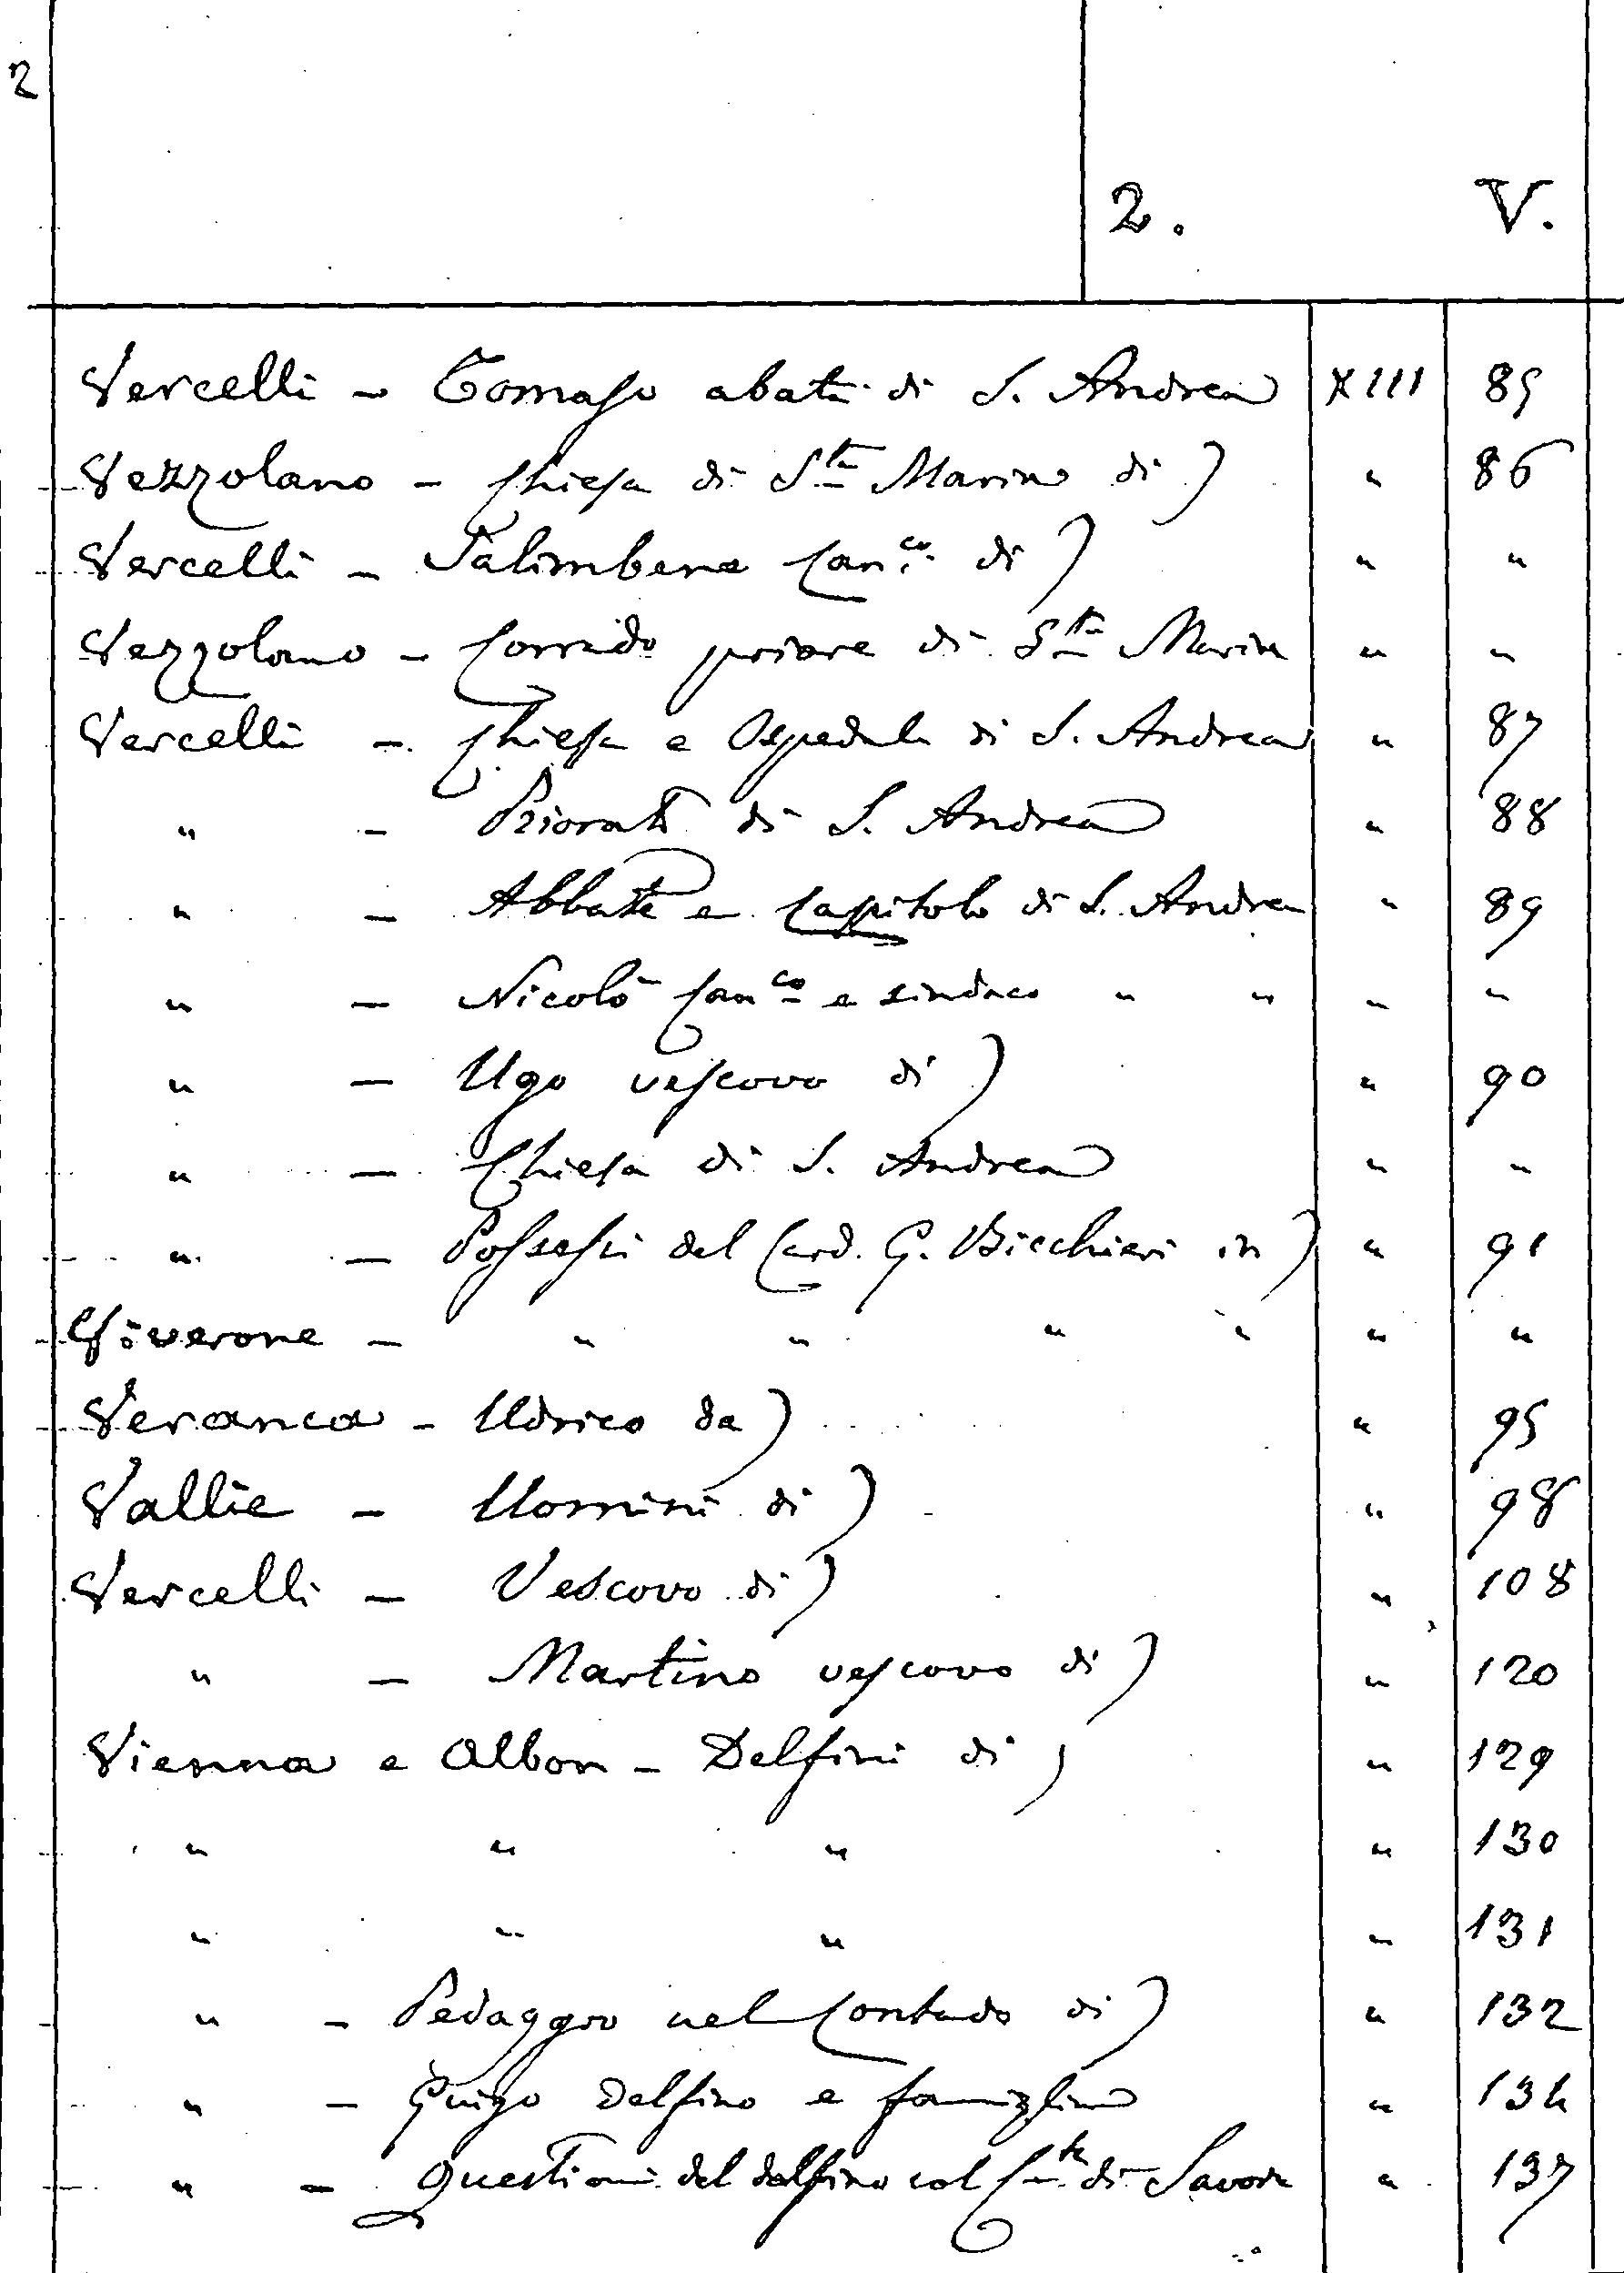 2
2. V.
Vercelli - Tomaso abate di S. Andrea XIII 85
Vezzolano - Chiesa di Sta Maria di) " 86
Vercelli - Salimbene Canco. di) " "
Vezzolano - Corrado priore di Sta Maria " "
Vercelli - Chiesa e Ospedale di S. Andrea " 87
" - Priorati di S. Andrea " 88
" - Abbate e Capitolo di S. Andrea " 89
" - Nicolò Canco e sindaco " " " "
" - Ugo vescovo di) " 90
" - Chiesa di S. Andrea " "
" - Possessi del Card. G. Bicchieri in) " 91
Viverone - " " " " " "
Veranca - Udrico da) " 95
Vallie - Uomini di) " 98
Vercelli - Vescovo di) " 108
" - Martino vescovo di) " 120
Vienna e Albon - Delfini di) " 129
" " " " 130
" " " " 131
" - Pedaggio nel Contado di) " 132
" - Guigo Delfino e famiglia " 134
" - Questioni del delfino col Cte di Savoia " 137